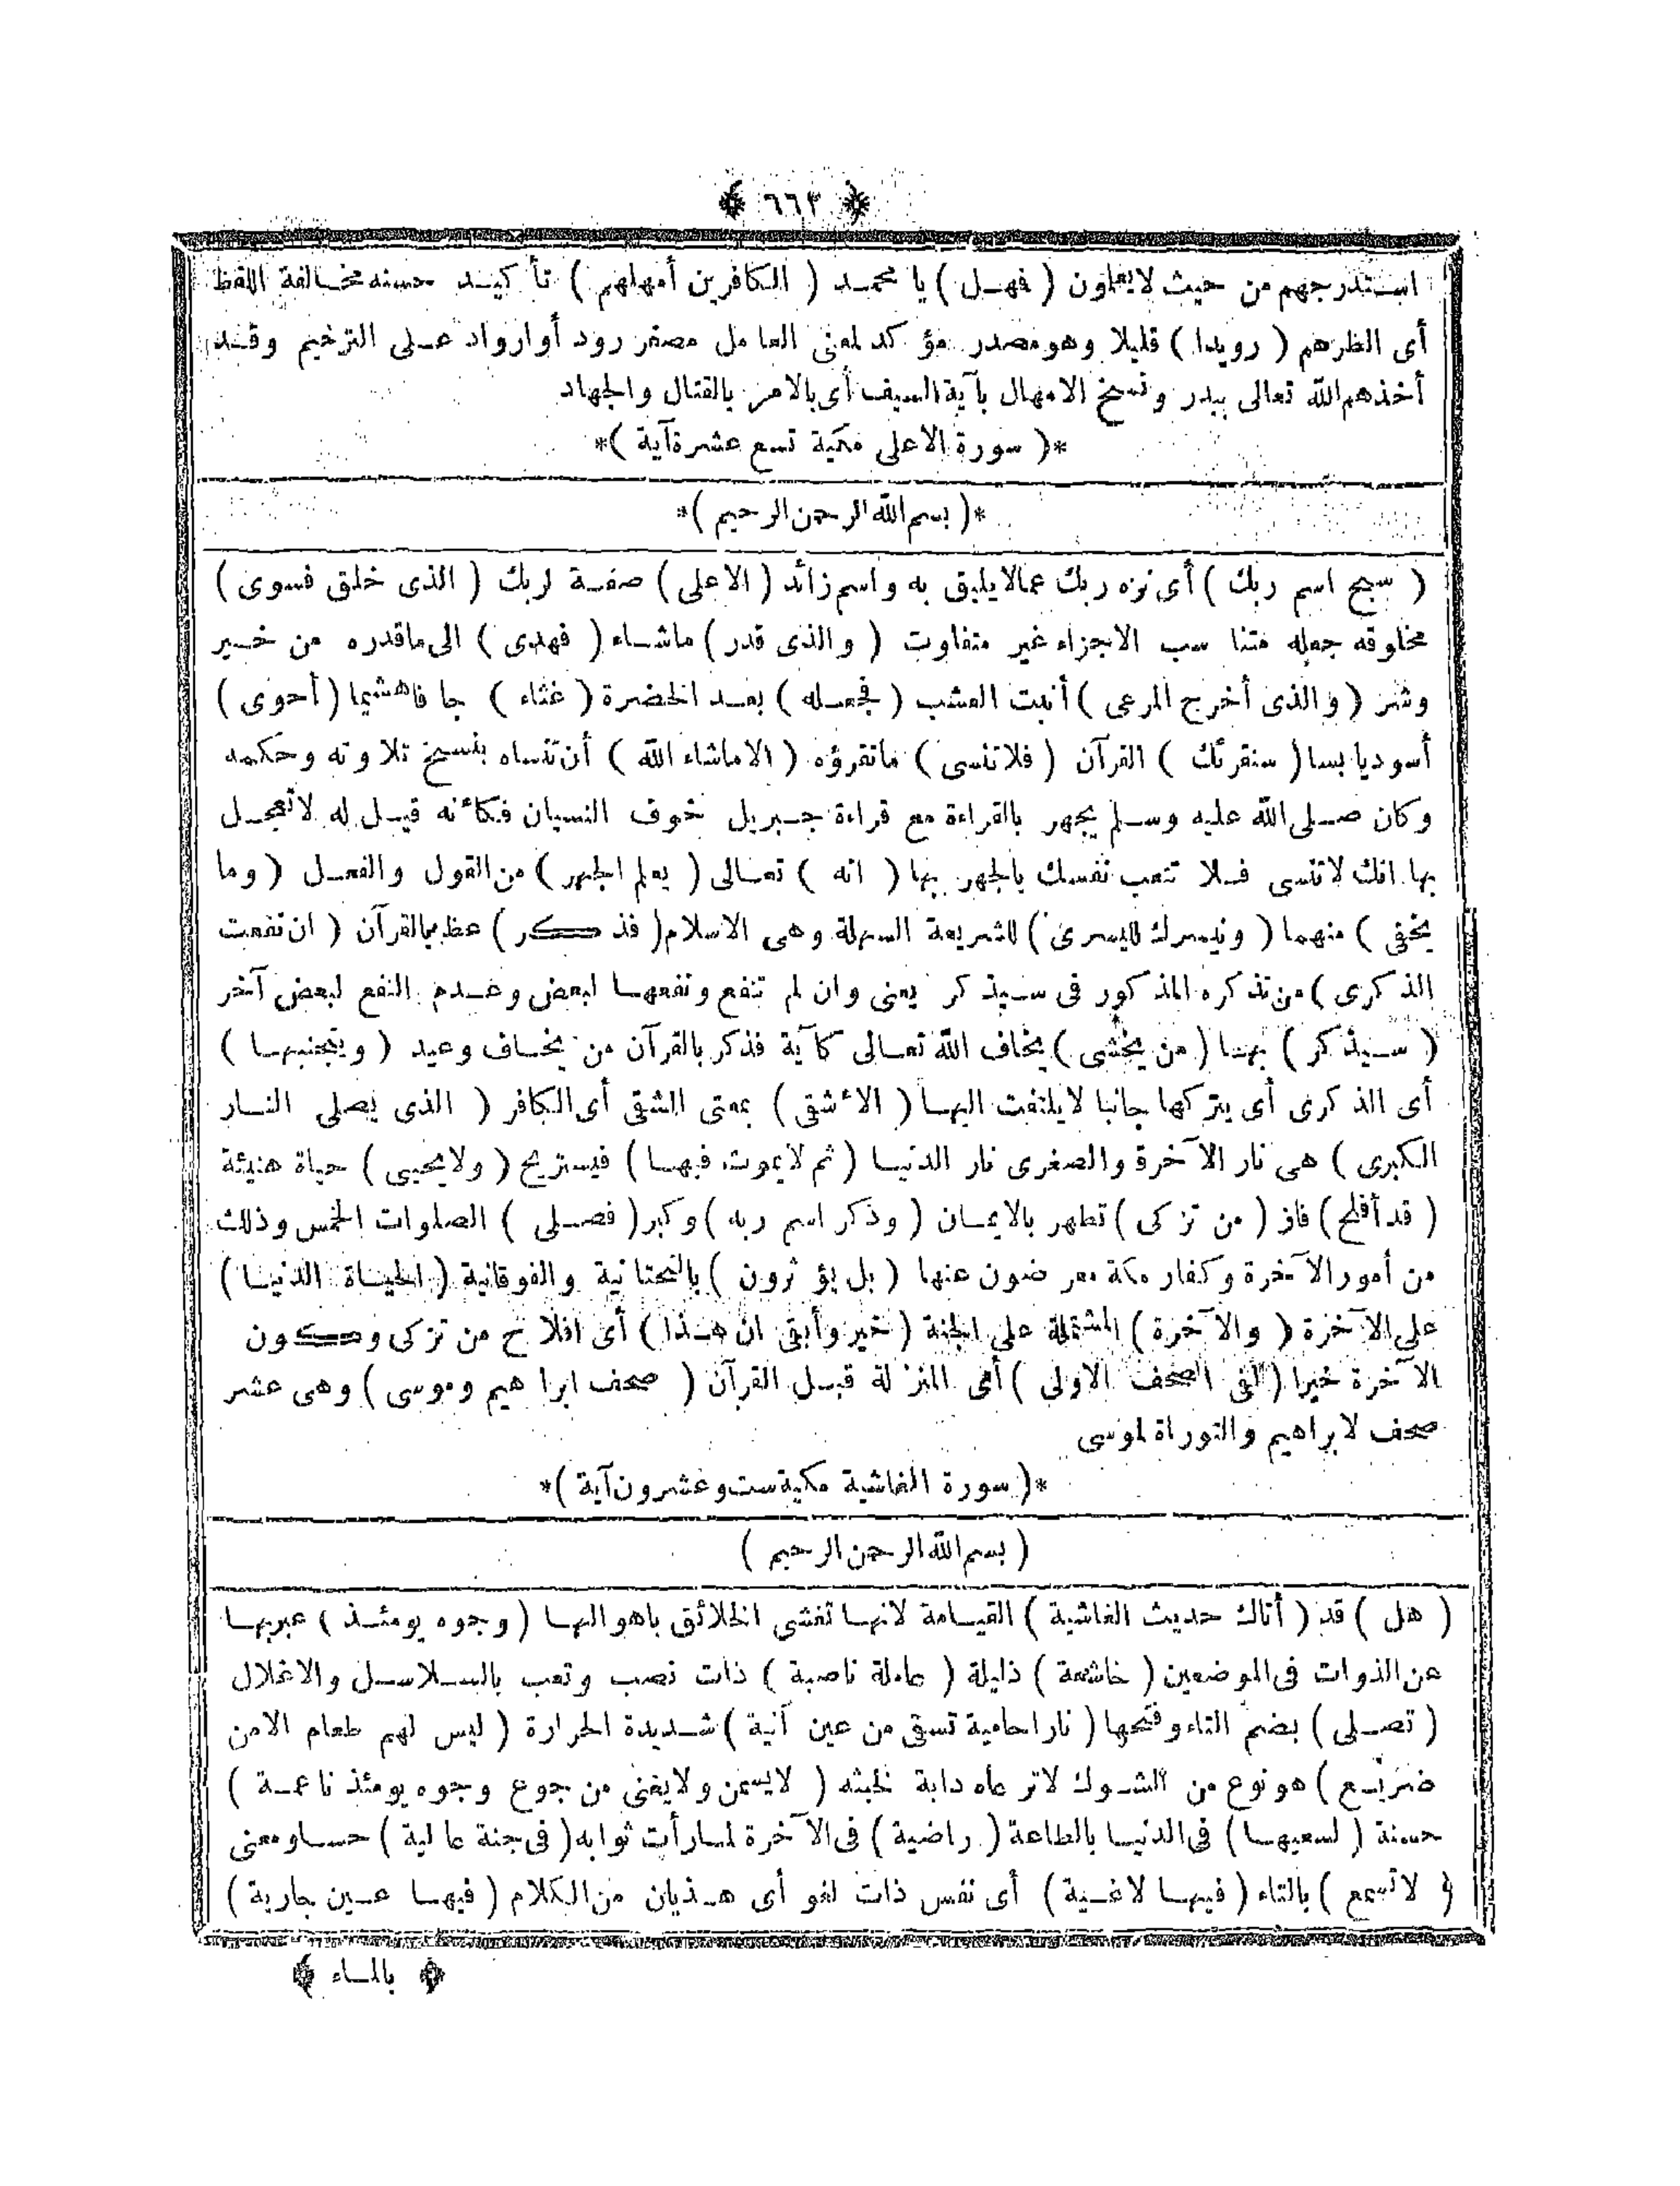 ﴿ ٦٦٣ ﴾
استدرجهم من حيث لايعلمون ( فهل ) يا محمد ( الكافرين أمهلهم ) تأكيد حسنه مخالفة اللفظ
أى انظرهم ( رويدا ) قليلا وهو مصدر مؤكد لمعنى العامل مصغر رود أوارواد على الترخيم وقد
أخذهم الله تعالى ببدر ونسخ الامهال بآية السيف أى بالامر بالقتال والجهاد
*( سورة الاعلى مكية تسع عشرة آية )*
*( بسم الله الرحمن الرحيم )*
( سبح اسم ربك ) أى نزه ربك عمالايليق به واسم زائد ( الاعلى ) صفة لربك ( الذى خلق فسوى )
مخلوقه جعله متناسب الاجزاء غير متفاوت ( والذى قدر ) ماشاء ( فهدى ) الى ماقدره من خير
وشر ( والذى أخرج المرعى ) أنبت العشب ( فجعله ) بعد الخضرة ( غثاء ) جافا هشيما ( أحوى )
أسود يابسا ( سنقرئك ) القرآن ( فلاتنسى ) ماتقرؤه ( الاماشاء الله ) أن تنساه بنسخ تلاوته وحكمه
وكان صلى الله عليه وسلم يجهر بالقراءة مع قراءة جبريل خوف النسيان فكأنه قيل له لاتعجل
بها انك لاتنسى فلا تتعب نفسك بالجهر بها ( انه ) تعالى ( يعلم الجهر ) من القول والفعل ( وما
يخفى ) منهما ( ونيسرك لليسرى ) للشريعة السهلة وهى الاسلام ( فذكر ) عظ بالقرآن ( ان نفعت
الذكرى ) من تذكره المذكور فى سيذكر يعنى وان لم تنفع ونفعها لبعض وعدم النفع لبعض آخر
( سيذكر ) بها ( من يخشى ) يخاف الله تعالى كآية فذكر بالقرآن من يخاف وعيد ( ويتجنبها )
أى الذكرى أى يتركها جانبا لايلتفت اليها ( الاشقى ) بمعنى الشقى أى الكافر ( الذى يصلى النار
الكبرى ) هى نار الآخرة والصغرى نار الدنيا ( ثم لايموت فيها ) فيستريح ( ولايحيى ) حياة هنيئة
( قد أفلح ) فاز ( من تزكى ) تطهر بالايمان ( وذكر اسم ربه ) وكبر ( فصلى ) الصلوات الخمس وذلك
من أمور الآخرة وكفار مكة معرضون عنها ( بل يؤثرون ) بالتحتانية والفوقانية ( الحياة الدنيا )
على الآخرة ( والآخرة ) المشتملة على الجنة ( خير وأبقى ان هذا ) أى افلاح من تزكى وكون
الآخرة خيرا ( لفى الصحف الاولى ) أى المنزلة قبل القرآن ( صحف ابراهيم وموسى ) وهى عشر
صحف لابراهيم والتوراة لموسى
*( سورة الغاشية مكية ست وعشرون آية )*
( بسم الله الرحمن الرحيم )
( هل ) قد ( أتاك حديث الغاشية ) القيامة لانها تغشى الخلائق باهوالها ( وجوه يومئذ ) عبربها
عن الذوات فى الموضعين ( خاشعة ) ذليلة ( عاملة ناصبة ) ذات نصب وتعب بالسلاسل والاغلال
( تصلى ) بضم التاء وفتحها ( نارا حامية تسقى من عين آنية ) شديدة الحرارة ( ليس لهم طعام الامن
ضريع ) هو نوع من الشوك لاترعاه دابة لخبثه ( لايسمن ولايغنى من جوع وجوه يومئذ ناعمة )
حسنة ( لسعيها ) فى الدنيا بالطاعة ( راضية ) فى الآخرة لمارأت ثوابه ( فى جنة عالية ) حسا ومعنى
( لاتسمع ) بالتاء ( فيها لاغية ) أى نفس ذات لغو أى هذيان من الكلام ( فيها عين جارية )
﴿ بالماء ﴾